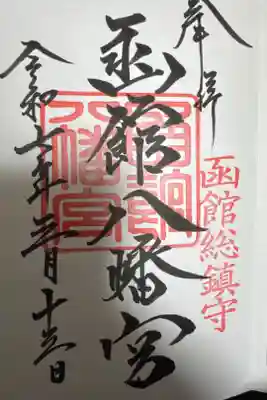 奉拝
函館総鎮守
函館八幡宮
八幡宮
令和七年三月十日